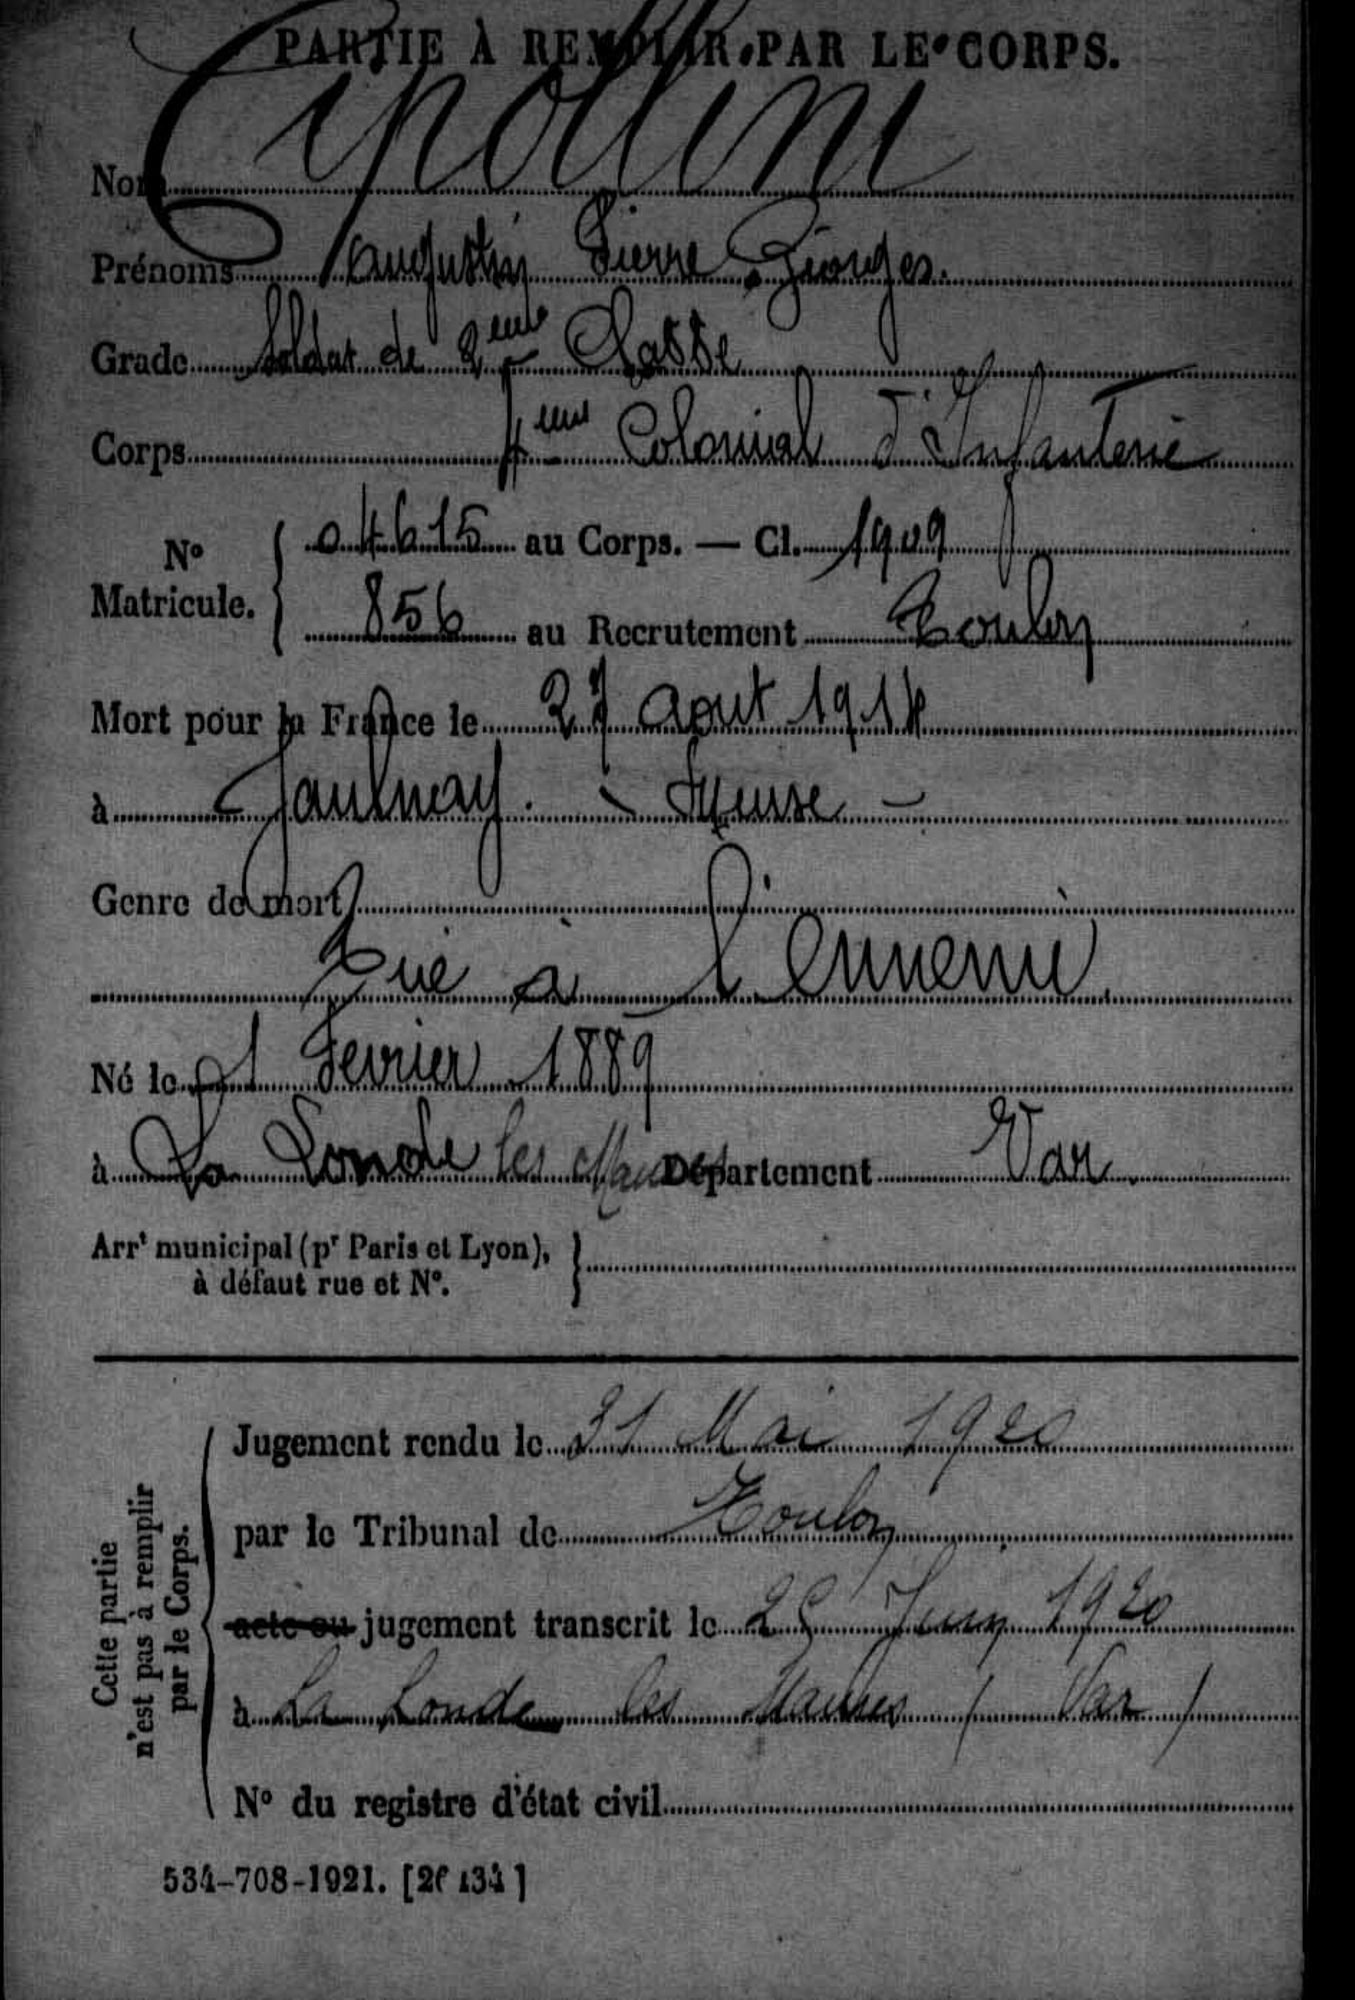 PARTIE À REMPLIR PAR LE CORPS.
Nom Cipollini
Prénoms Augustin Pierre Georges.
Grade Soldat de 2eme Classe
Corps 4eme Colonial d'Infanterie
No Matricule. { 04615 au Corps. — Cl. 1909
856 au Recrutement Toulon
Mort pour la France le 27 Aout 1914
à Jaulnay - Meuse -
Genre de mort
Tué à l'ennemi
Né le 1 Fevrier 1889
à La Londe les Maures Département Var
Arrt municipal (pr Paris et Lyon), }
à défaut rue et No.
Cette partie
n'est pas à remplir
par le Corps.
Jugement rendu le 31 Mai 1920
par le Tribunal de Toulon
acte ou jugement transcrit le Juin 1920
à La Londe les Maures (Var)
No du registre d'état civil
534-708-1921. [26134]